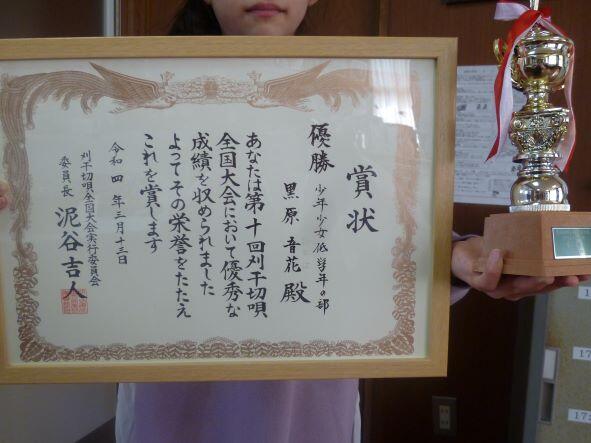 賞状
優勝 少年少女低学年の部
黒原音花殿
あなたは第十回刈干切唄
全国大会において優秀な
成績を収められました
よってその栄誉をたたえ
これを賞します
令和四年三月十三日
刈干切唄全国大会実行委員会
委員長 泥谷吉人